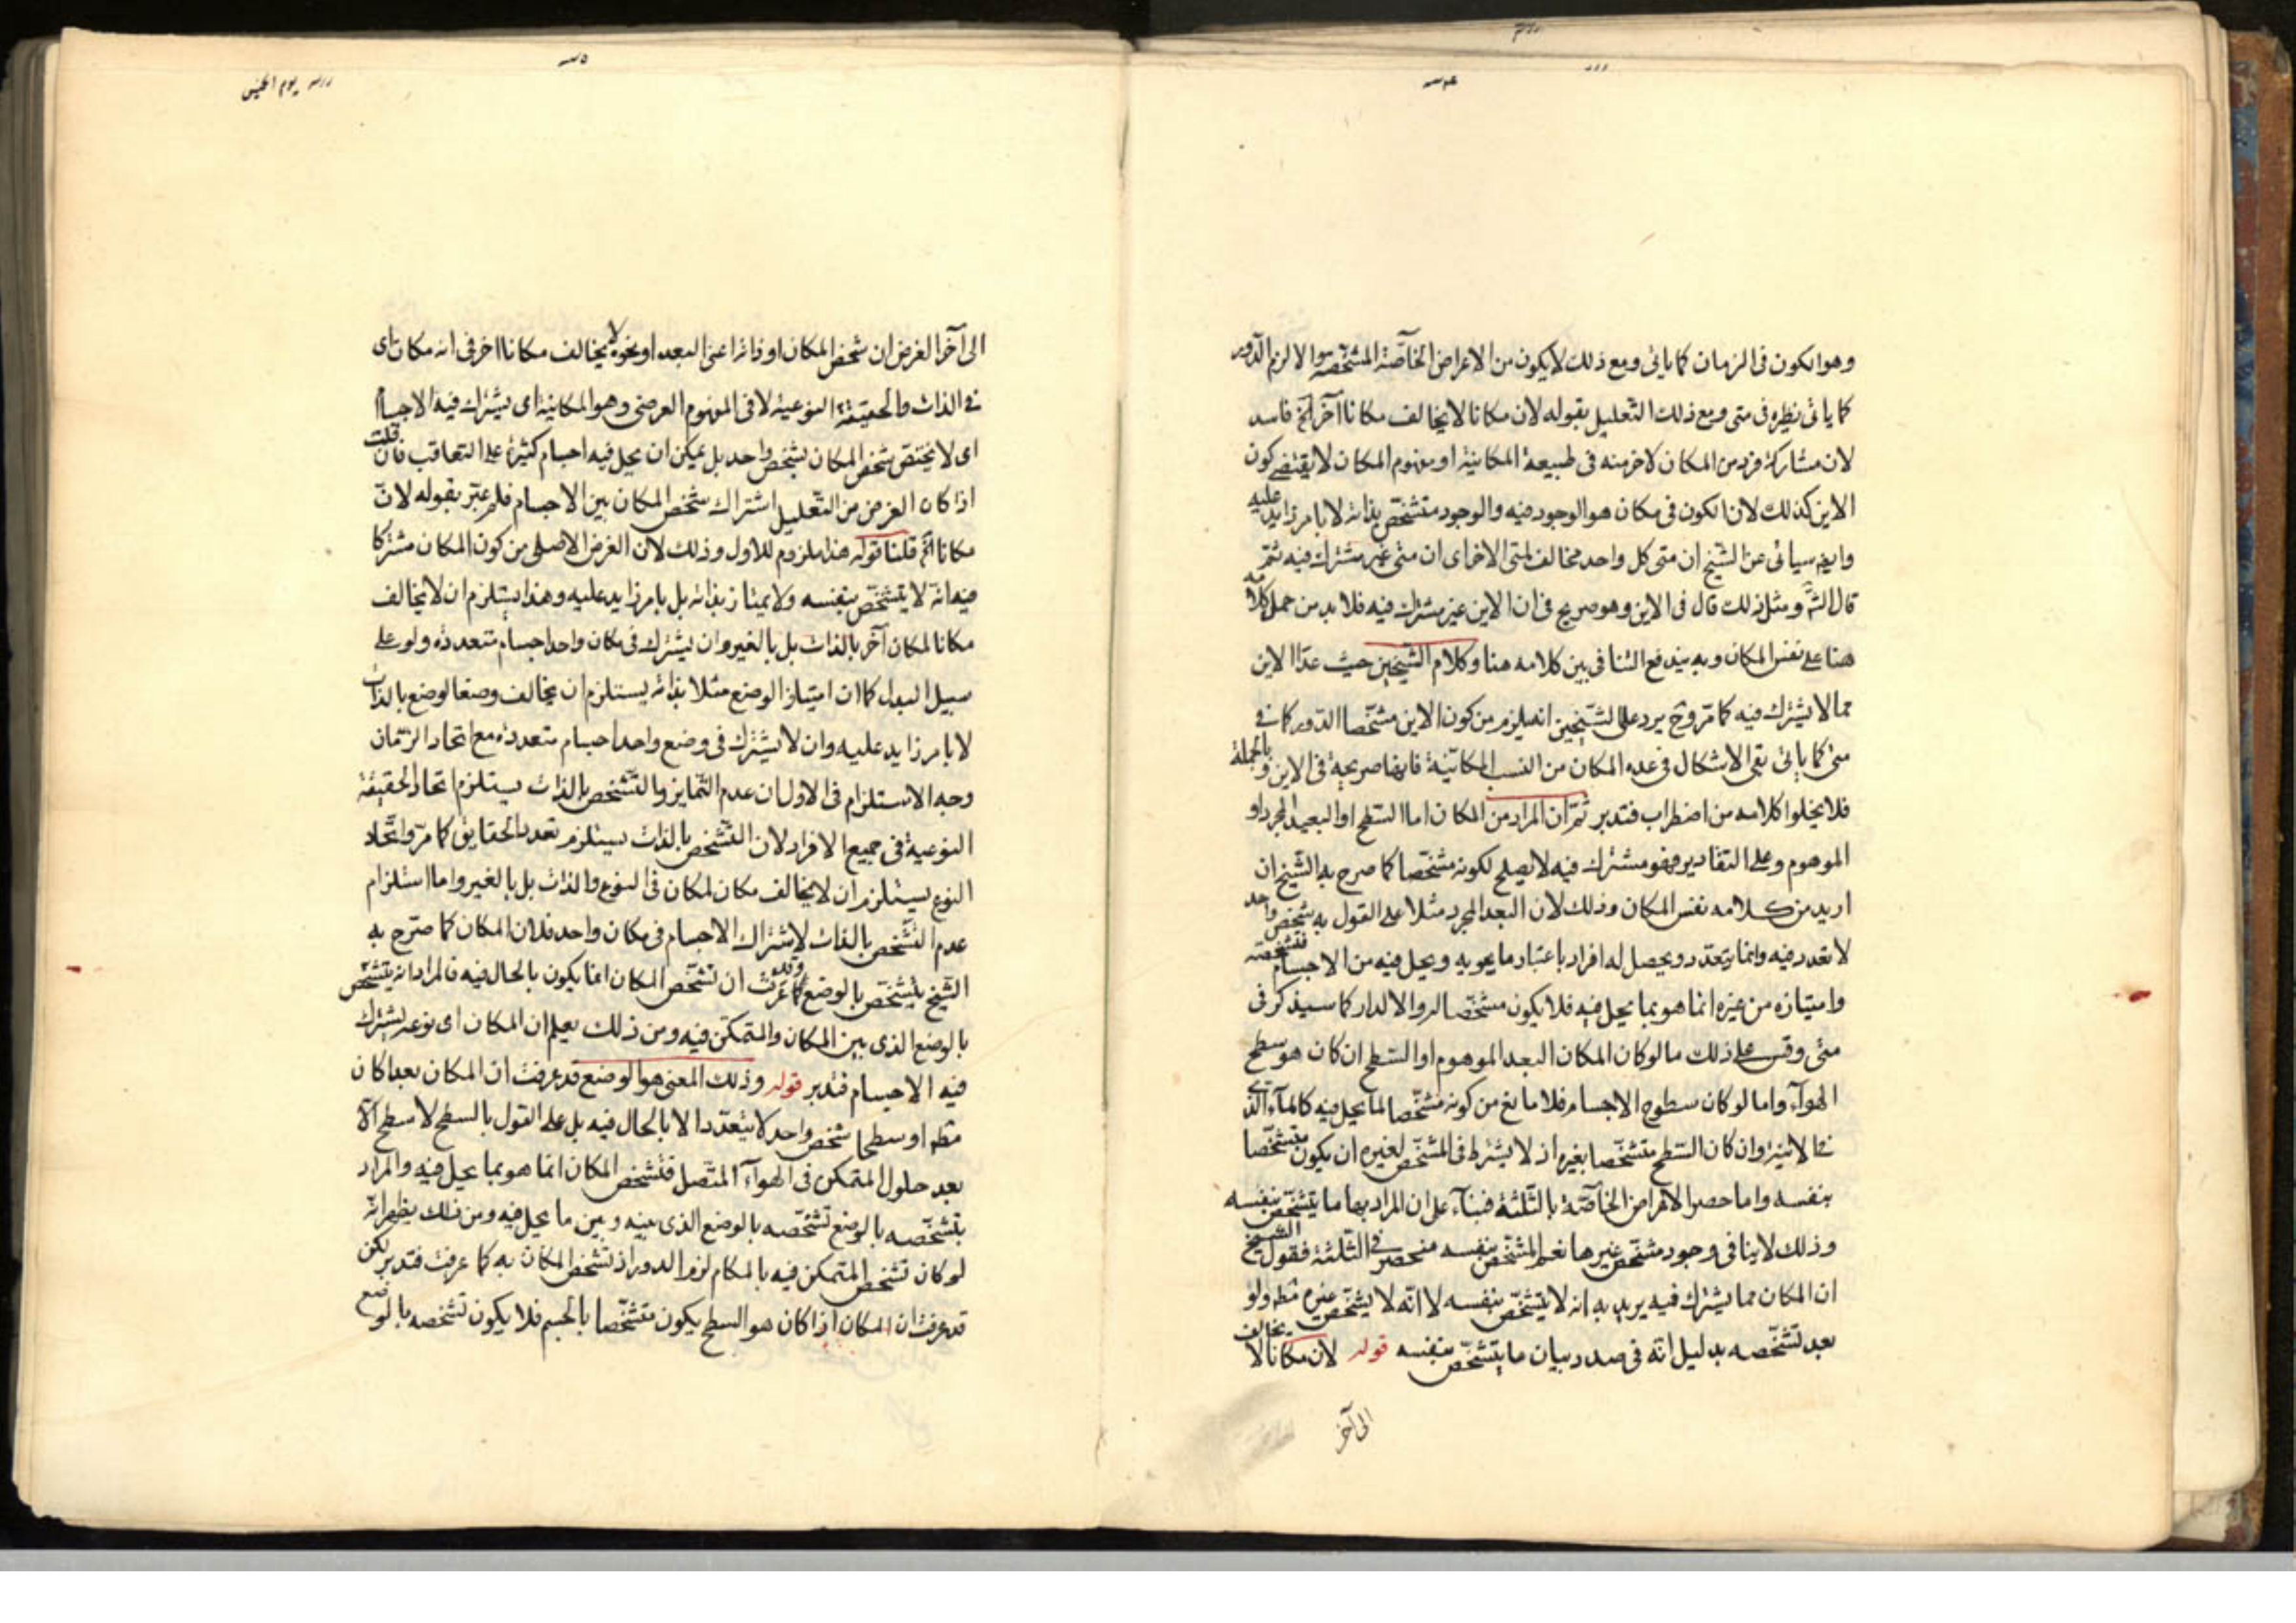 وهو الكون فى الزمان كما ياتى ومع ذلك لا يكون من الاعراض الخاصّة المشخّصة والا لزم الدّور
كما ياتى نظيره فى متى ومع ذلك التّعليل بقوله لان مكانا لا يخالف مكانا آخر الخ فاسد
لان مشاركة فرد من المكان لاخر منه فى طبيعة المكانية او مفهوم المكان لا يقتضے كون
الاين كذلك لان الكون فى مكان هو الوجود فيه والوجود متشخّص بذاته لا بامر زايد عليه
وايضا سياتى عن الشّيخ ان متى كل واحد مخالف لمتى الاخر اى ان متى غير مشترك فيه ثمّ
قال الشّ ومثل ذلك قال فى الاين وهو صريح فى ان الاين غير مشترك فيه فلا بد من حمل كلامه
هنا على نفس المكان وبه يندفع التنافى بين كلامه هنا وكلام الشّيخين حيث عدّا الاين
مما لا يشترك فيه كما مرّ وح يرد على الشّيخين انه يلزم من كون الاين مشخّصا الدّور كما فے
متى كما ياتى بقى الاشكال فى عده المكان من النسب المكانيّة فانها صريحة فى الاين وبالجملة
فلا يخلوا كلامه من اضطراب فتدبر ثمّ ان المراد من المكان اما السّطح او البعد المجرد او
الموهوم وعلى التقادير فهو مشترك فيه لا يصلح لكونه مشخّصا كما صرح به الشّيخ ان
اريد من كلامه نفس المكان وذلك لان البعد المجرد مثلا على القول به شخص واحد
لا تعدد فيه وانما يتعدّد ويحصل له افراد باعتبار ما يحويه ويحل فيه من الاجسام فتشخصه
وامتيازه من غيره انما هو بما يحل فيه فلا يكون مشخّصا له والا لدار كما سيذكر فى
متى وقس على ذلك ما لو كان المكان البعد الموهوم او السّطح ان كان هو سطح
الهوآء واما لو كان سطوح الاجسام فلا مانع من كونه مشخّصا لما يحل فيه كالمآء الّذے
فے الانية وان كان السّطح متشخّصا بغيره اذ لا يشترط فى المشخّص لغيره ان يكون متشخّصا
بنفسه واما حصر الاعراض الخاصّة بالثّلثة فبنآء على ان المراد بها ما يتشخّص بنفسه
وذلك لا ينافى وجود مشخّص غيرها نعم المشخّص بنفسه منحصر فى الثّلثة فقول الشيخ
ان المكان مما يشترك فيه يريد به انه لا يتشخّص بنفسه لا انّه لا يشخّص غيره مط ولو
بعد تشخّصه بدليل انّه فى صدد بيان ما يتشخّص بنفسه قوله لان مكانا لا يخالف
الى آخر
الى آخر الغرض ان شخص المكان او ذاته اعنى البعد او نحوه لا يخالف مكانا اخر فى انه مكان اى
فے الذات والحقيقة النوعية لا فى المفهوم العرضى وهو المكانية اى يشترك فيه الاجسام
اى لا يختص شخص المكان بشخص واحد بل يمكن ان يحل فيه اجسام كثيرة على التعاقب فان قلت
اذا كان الغرض من التّعليل اشتراك شخص المكان بين الاجسام فلم عبّر بقوله لان
مكانا الخ قلنا قوله هذا ملزوم للاول وذلك لان الغرض الاصلى من كون المكان مشتركا
فيه انه لا يتشخّص بنفسه ولا يمتاز بذاته بل بامر زايد عليه وهذا يستلزم ان لا يخالف
مكانا لمكان آخر بالذات بل بالغير وان يشترك فى مكان واحد اجسام متعددة ولو على
سبيل البدل كما ان امتياز الوضع مثلا بذاته يستلزم ان يخالف وضعا لوضع بالذات
لا بامر زايد عليه وان لا يشترك فى وضع واحد اجسام متعددة مع اتحاد الزّمان
وجه الاستلزام فى الاول ان عدم التّمايز والتّشخص بالذات يستلزم اتحاد الحقيقة
النوعية فى جميع الافراد لان التّشخص بالذات يستلزم تعدد الحقايق كما مرّ واتّحاد
النوع يستلزم ان لا يخالف مكان لمكان فى النوع والذات بل بالغير واما استلزام
عدم التّشخص بالذات لاشتراك الاجسام فى مكان واحد فلان المكان كما صرّح به
الشّيخ يتشخّص بالوضع وقد عرفت ان تشخّص المكان انما يكون بالحال فيه فالمراد انه يتشخّص
بالوضع الذى بين المكان والمتمكّن فيه ومن ذلك يعلم ان المكان اى نوعه يشترك
فيه الاجسام فتدبر قوله وذلك المعنى هو الوضع قد عرفت ان المكان بعدا كان
مط او سطحا شخص واحد لا يتعدّد الا بالحال فيه بل على القول بالسطح لا سطح الّا
بعد حلول المتمكن فى الهوآء المتّصل فتشخص المكان انما هو بما يحل فيه والمراد
بتشخّصه بالوضع تشخّصه بالوضع الذى بينه وبين ما يحل فيه ومن ذلك يظهر انّه
لو كان تشخص المتمكن فيه بالمكان لزم الدور اذ تشخص المكان به كما عرفت فتدبر لكن
قد عرفت ان المكان اذا كان هو السطح يكون متشخّصا بالجسم فلا يكون تشخصه بالوضع